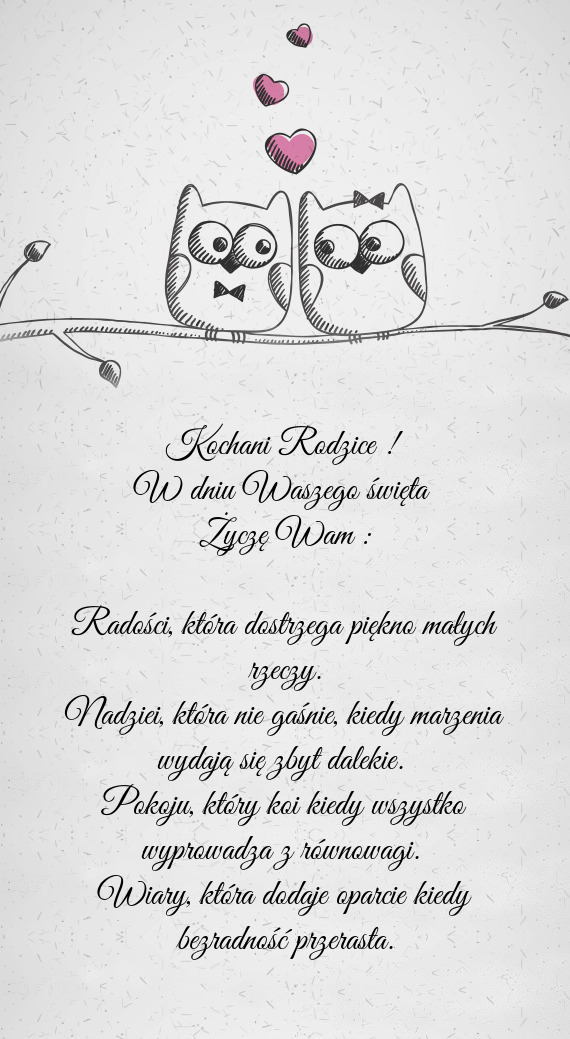 Kochani Rodzice !
W dniu Waszego święta
Życzę Wam :
Radości, która dostrzega piękno małych
rzeczy.
Nadziei, która nie gaśnie, kiedy marzenia
wydają się zbyt dalekie.
Pokoju, który koi kiedy wszystko
wyprowadza z równowagi.
Wiary, która dodaje oparcie kiedy
bezradność przerasta.